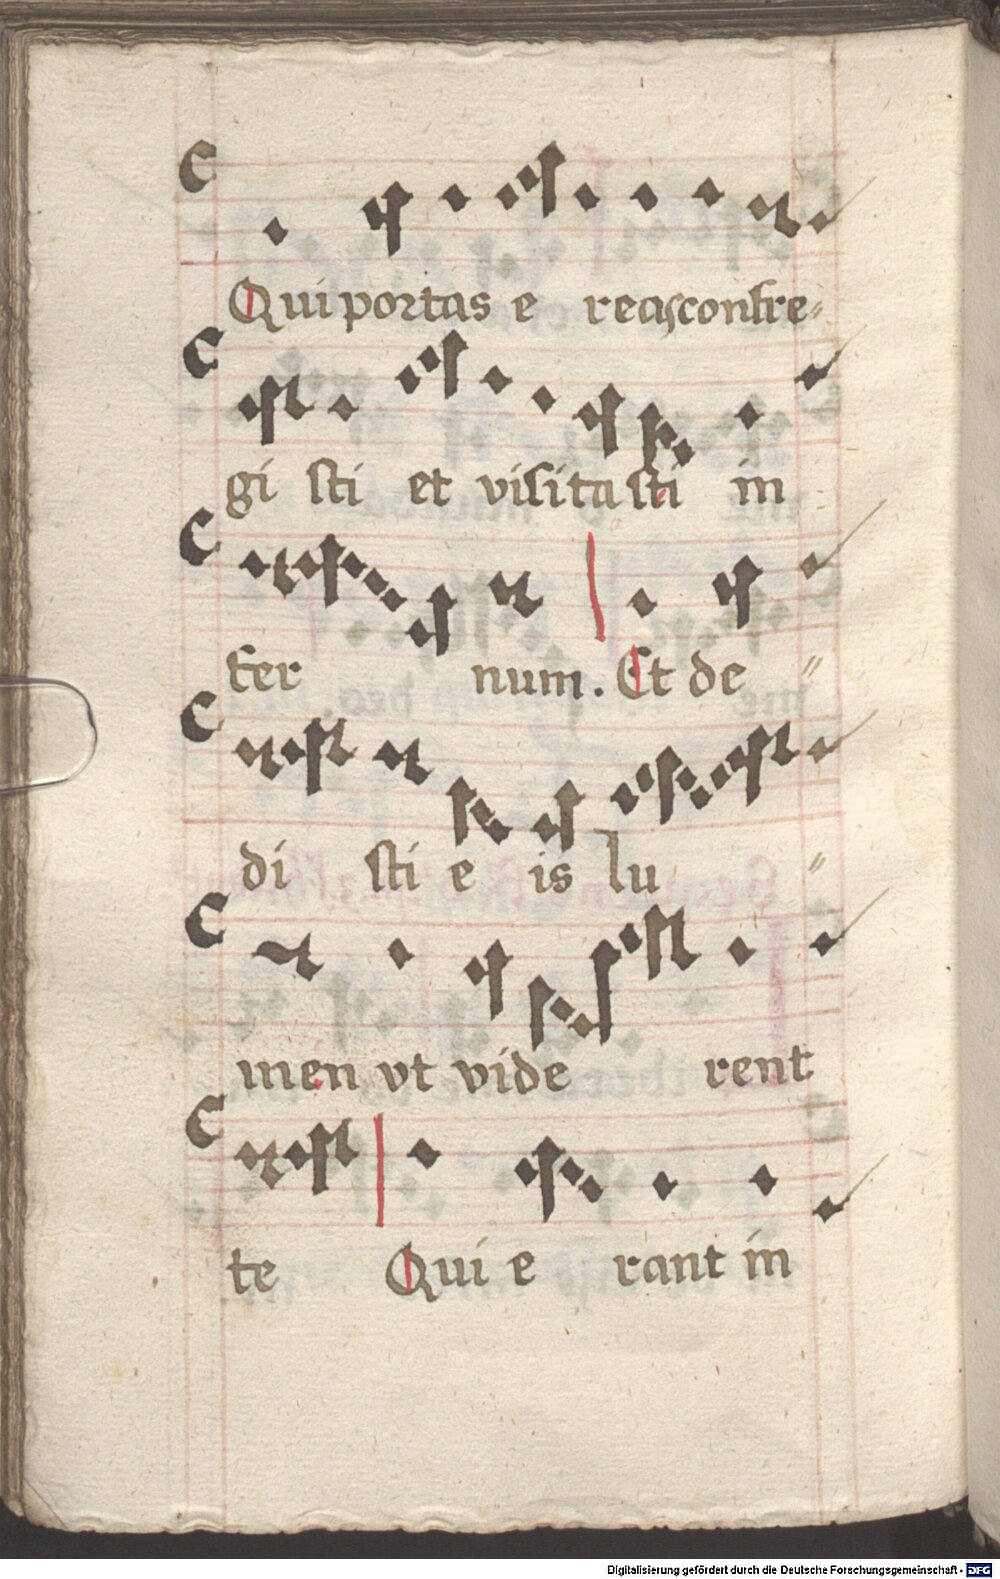 Qui portas e reas confre-
gi sti et visita sti in
fer num. Et de
di sti e is lu
men vt vide rent
te Qui e rant in
Digitalisierung gefördert durch die Deutsche Forschungsgemeinschaft - DFG